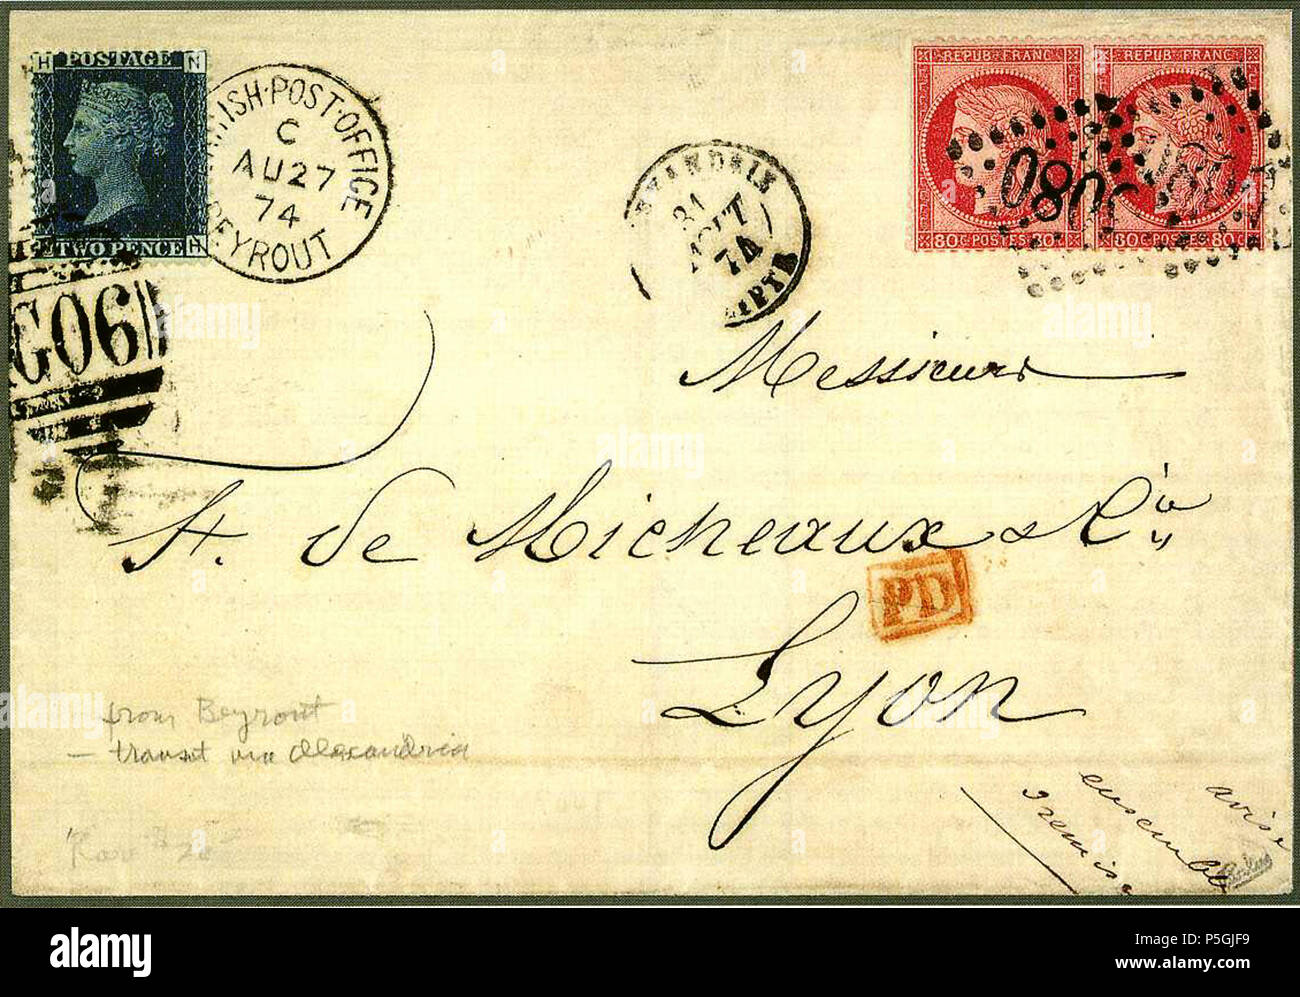 H POSTAGE N
TWO PENCE H
BRITISH·POST·OFFICE
C
AU27
74
BEYROUT
G06
ALEXANDRIE
31
AOUT
74
EGYPTE
REPUB·FRANC·
80C·POSTES·80C
REPUB·FRANC·
80C·POSTES·80C
5080
Messieurs
H. de Micheaux & Cie
PD
Lyon
from Beyrout
- transit via Alexandria
"Rare
alamy
Image ID: P5GJF9
www.alamy.com